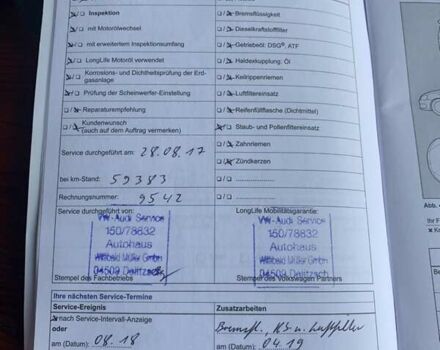 Inspektion
□ / Bremsflüssigkeit
mit Motorölwechsel
□ / Dieselkraftstofffilter
mit erweitertem Inspektionsumfang
□ / Getriebeöl: DSG®, ATF
LongLife Motoröl verwendet
□ / Haldexkupplung: Öl
Korrosions- und Dichtheitsprüfung der Erd-
gasanlage
□ / Keilrippenriemen
□ Prüfung der Scheinwerfer-Einstellung
□ / Luftfiltereinsatz
Reparaturempfehlung
□ / Reifenfüllflasche (Dichtmittel)
Kundenwunsch
(auch auf dem Auftrag vermerken)
Staub- und Pollenfiltereinsatz
□ / Zahnriemen
Service durchgeführt am: 28.08.17
Zündkerzen
bei km-Stand: 59383
Rechnungsnummer: 9542
Service durchgeführt von:
LongLife Mobilitätsgarantie:
VW-Audi Service
150/78832
Autohaus
Müller GmbH
04509 Delitzsch
Stempel des Fachbetriebs
VW-Audi Service
150/78832
Autohaus
Müller GmbH
04509 Delitzsch
Stempel des Volkswagen Partners
Ihre nächsten Service-Termine
Service-Ereignis
Zusatzarbeiten
nach Service-Intervall-Anzeige
oder
am (Datum): 08.18
u. Luftfilter
am (Datum): 04.19
Abb.